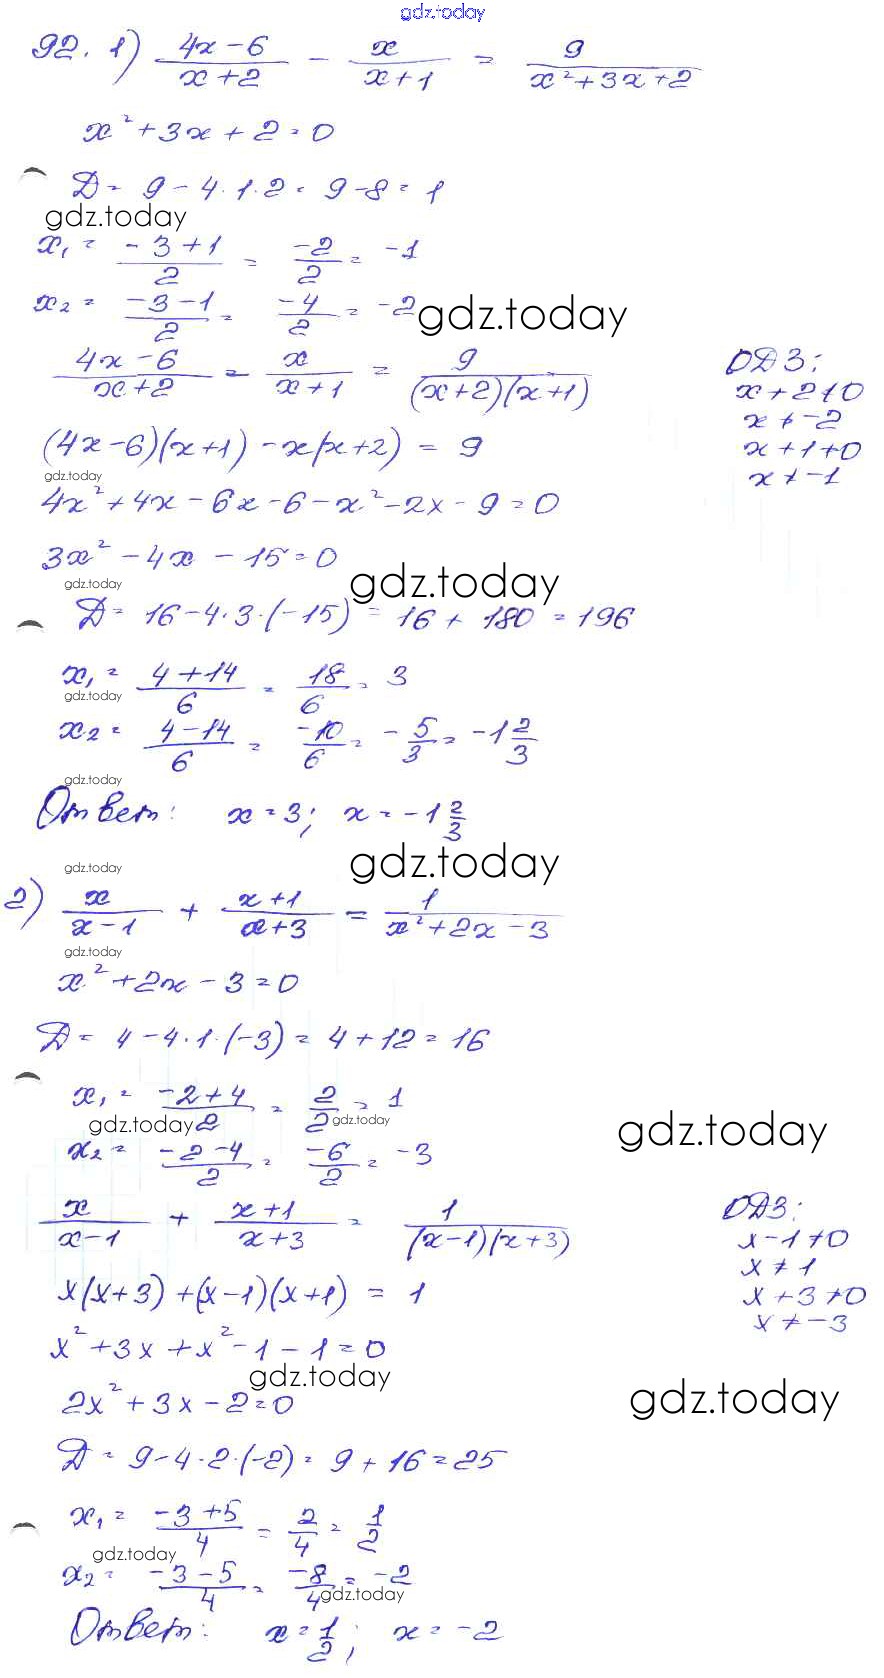 gdz.today
92. 1) (4x-6)/(x+2) - x/(x+1) = 9/(x²+3x+2)
x²+3x+2=0
Д= 9-4·1·2= 9-8=1
gdz.today
x₁= (-3+1)/2 = -2/2 = -1
x₂= (-3-1)/2 = -4/2 = -2
gdz.today
(4x-6)/(x+2) - x/(x+1) = 9/((x+2)(x+1))
ОДЗ:
x+2≠0
x≠-2
x+1≠0
x≠-1
(4x-6)(x+1)-x(x+2) = 9
gdz.today
4x²+4x-6x-6-x²-2x-9=0
3x²-4x-15=0
gdz.today
gdz.today
Д= 16-4·3·(-15) = 16+180=196
x₁= (4+14)/6 = 18/6 = 3
gdz.today
x₂= (4-14)/6 = -10/6 = -5/3 = -1 2/3
gdz.today
Ответ: x=3; x=-1 2/3
gdz.today
gdz.today
2) x/(x-1) + (x+1)/(x+3) = 1/(x²+2x-3)
gdz.today
x²+2x-3=0
Д= 4-4·1·(-3)= 4+12=16
x₁= (-2+4)/2 = 2/2 = 1
gdz.today
gdz.today
gdz.today
x₂= (-2-4)/2 = -6/2 = -3
x/(x-1) + (x+1)/(x+3) = 1/((x-1)(x+3))
ОДЗ:
x-1≠0
x≠1
x+3≠0
x≠-3
x(x+3)+(x-1)(x+1) = 1
x²+3x+x²-1-1=0
gdz.today
2x²+3x-2=0
gdz.today
Д= 9-4·2·(-2)= 9+16=25
x₁= (-3+5)/4 = 2/4 = 1/2
gdz.today
x₂= (-3-5)/4 = -8/4 = -2
gdz.today
Ответ: x=1/2; x=-2